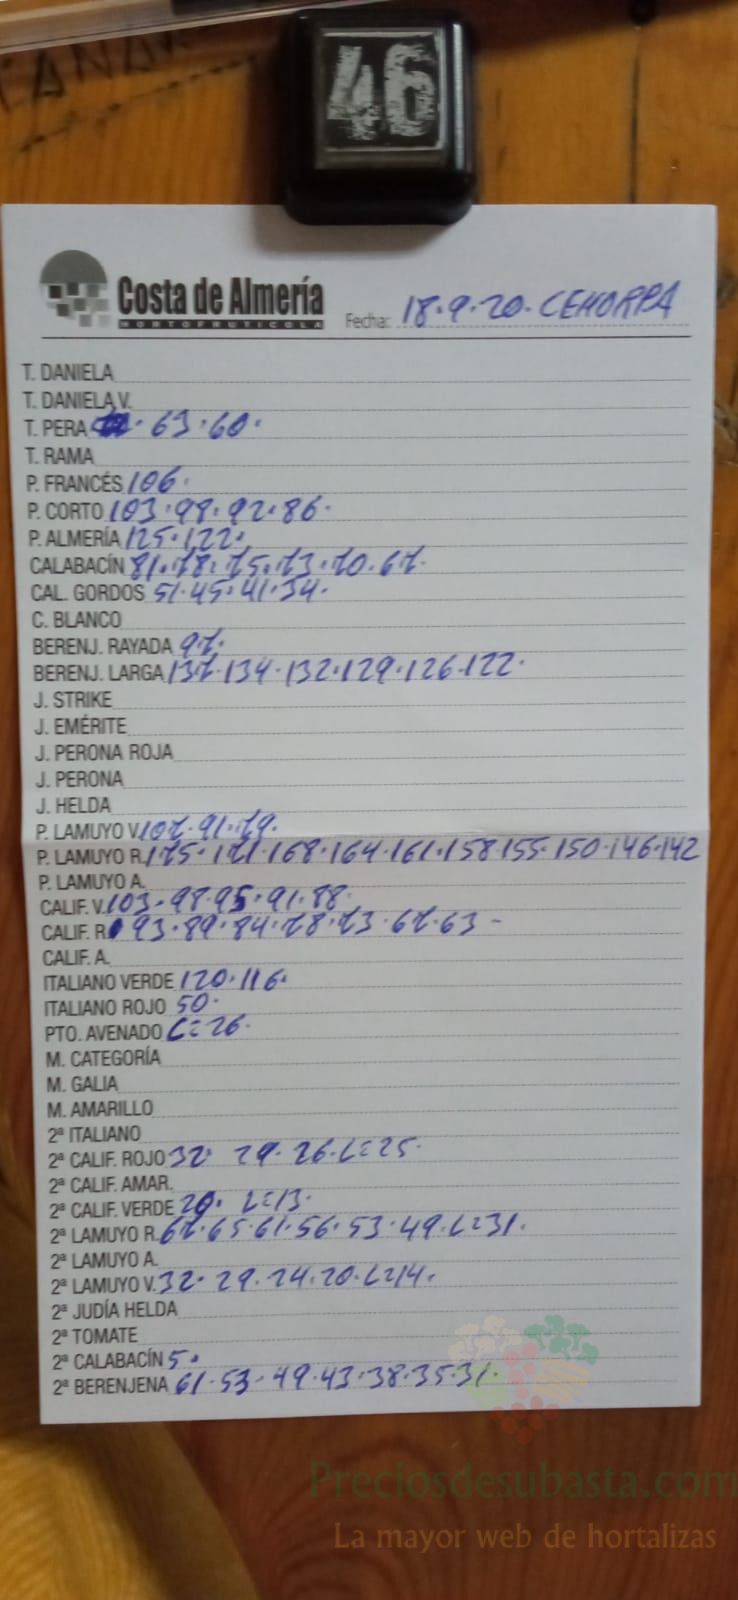 CANAR
46
Costa de Almería
HORTOFRUTICOLA
Fecha: 18.9.20. CEHORPA
T. DANIELA
T. DANIELA V.
T. PERA . 63.60.
T. RAMA
P. FRANCÉS 106.
P. CORTO 103.98.92.86.
P. ALMERÍA 125.122.
CALABACÍN 81.78.75.73.70.67.
CAL. GORDOS 51.45.41.34.
C. BLANCO
BERENJ. RAYADA 97.
BERENJ. LARGA 137.134.132.129.126.122.
J. STRIKE
J. EMÉRITE
J. PERONA ROJA
J. PERONA
J. HELDA
P. LAMUYO V. 107.91.79.
P. LAMUYO R. 175.171.168.164.161.158 155.150.146.142
P. LAMUYO A.
CALIF. V. 103.98.95.91.88.
CALIF. R 93.89.84.78.73.67.63 -
CALIF. A.
ITALIANO VERDE 120.116.
ITALIANO ROJO 50.
PTO. AVENADO L=26.
M. CATEGORÍA
M. GALIA
M. AMARILLO
2ª ITALIANO
2ª CALIF. ROJO 32. 29.26.L=25.
2ª CALIF. AMAR.
2ª CALIF. VERDE 20. L=13.
2ª LAMUYO R. 67.65.61.56.53.49.L=31.
2ª LAMUYO A.
2ª LAMUYO V. 32.29.24.20.L=14.
2ª JUDÍA HELDA
2ª TOMATE
2ª CALABACÍN 5.
2ª BERENJENA 61.53.49.43.38.35.31.
Preciosdesubasta.com
La mayor web de hortalizas